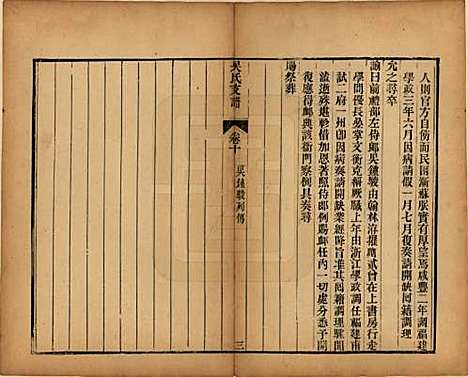 人則官方自飭而民困漸蘇脈實有厚望焉咸豐二年調福建
學政三年六月因病請假一月七月復奏請開缺回籍調理
允之尋卒
諭曰前禮部左侍郎吳鍾駿由翰林洊擢貳曾在上書房行走
學問優長屢掌文衡克稱厥職上年由浙江學政調任福建甫
試二府一州卽因病奏請開缺業經降旨准其回籍調理茲
溘逝殊堪軫惜加恩著照侍郎例賜卹任內一切處分悉予開
復應得卹典該衙門察例具奏尋
賜祭葬
吳氏支譜
卷十
吳鍾駿列傳
三